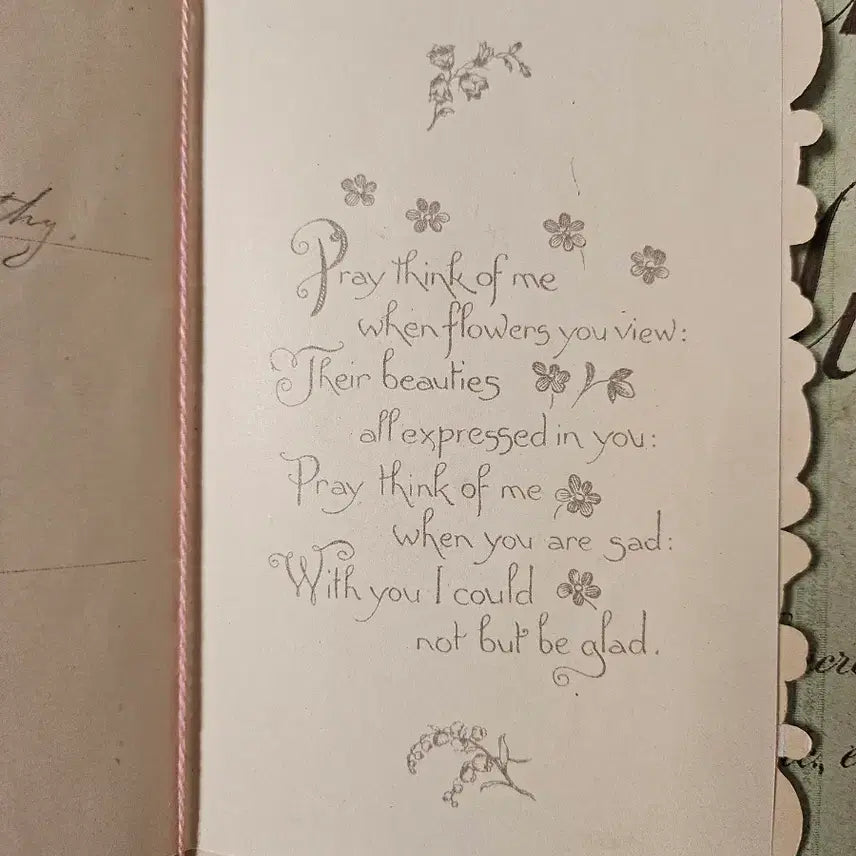 thy.
Pray think of me
when flowers you view:
Their beauties
all expressed in you:
Pray think of me
when you are sad:
With you I could
not but be glad.